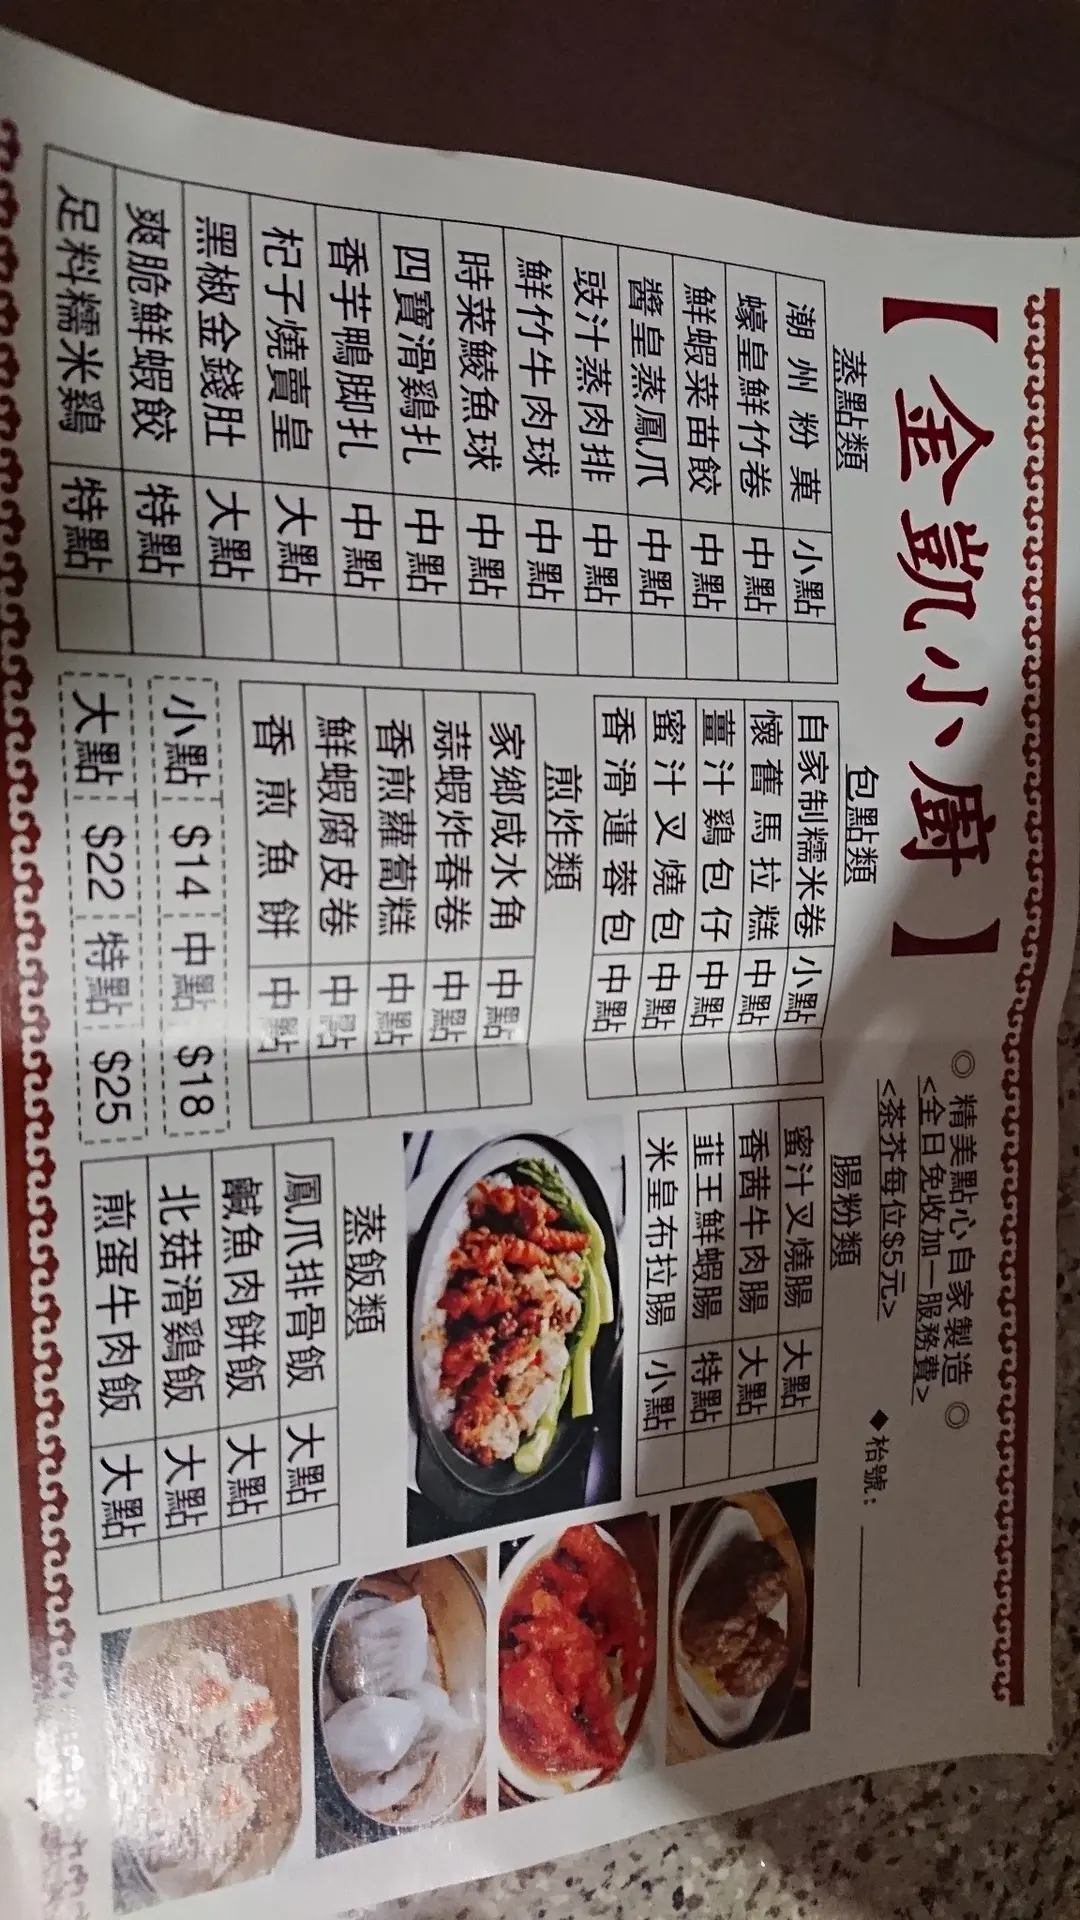 【金凱小廚】
◎ 精美點心自家製造 ◎
<全日免收加一服務費>
<茶芥每位$5元>
◆枱號：
蒸點類
潮州粉菓 小點
蠔皇鮮竹卷 中點
鮮蝦菜苗餃 中點
醬皇蒸鳳爪 中點
豉汁蒸肉排 中點
鮮竹牛肉球 中點
時菜鯪魚球 中點
四寶滑鷄扎 中點
香芋鴨脚扎 中點
杞子燒賣皇 大點
黑椒金錢肚 大點
爽脆鮮蝦餃 特點
足料糯米鷄 特點
包點類
自家制糯米卷 小點
懷舊馬拉糕 中點
薑汁鷄包仔 中點
蜜汁叉燒包 中點
香滑蓮蓉包 中點
煎炸類
家鄉咸水角 中點
蒜蝦炸春卷 中點
香煎蘿蔔糕 中點
鮮蝦腐皮卷 中點
香煎魚餅 中點
小點 $14 中點 $18
大點 $22 特點 $25
腸粉類
蜜汁叉燒腸 大點
香茜牛肉腸 大點
韮王鮮蝦腸 特點
米皇布拉腸 小點
蒸飯類
鳳爪排骨飯 大點
鹹魚肉餅飯 大點
北菇滑鷄飯 大點
煎蛋牛肉飯 大點